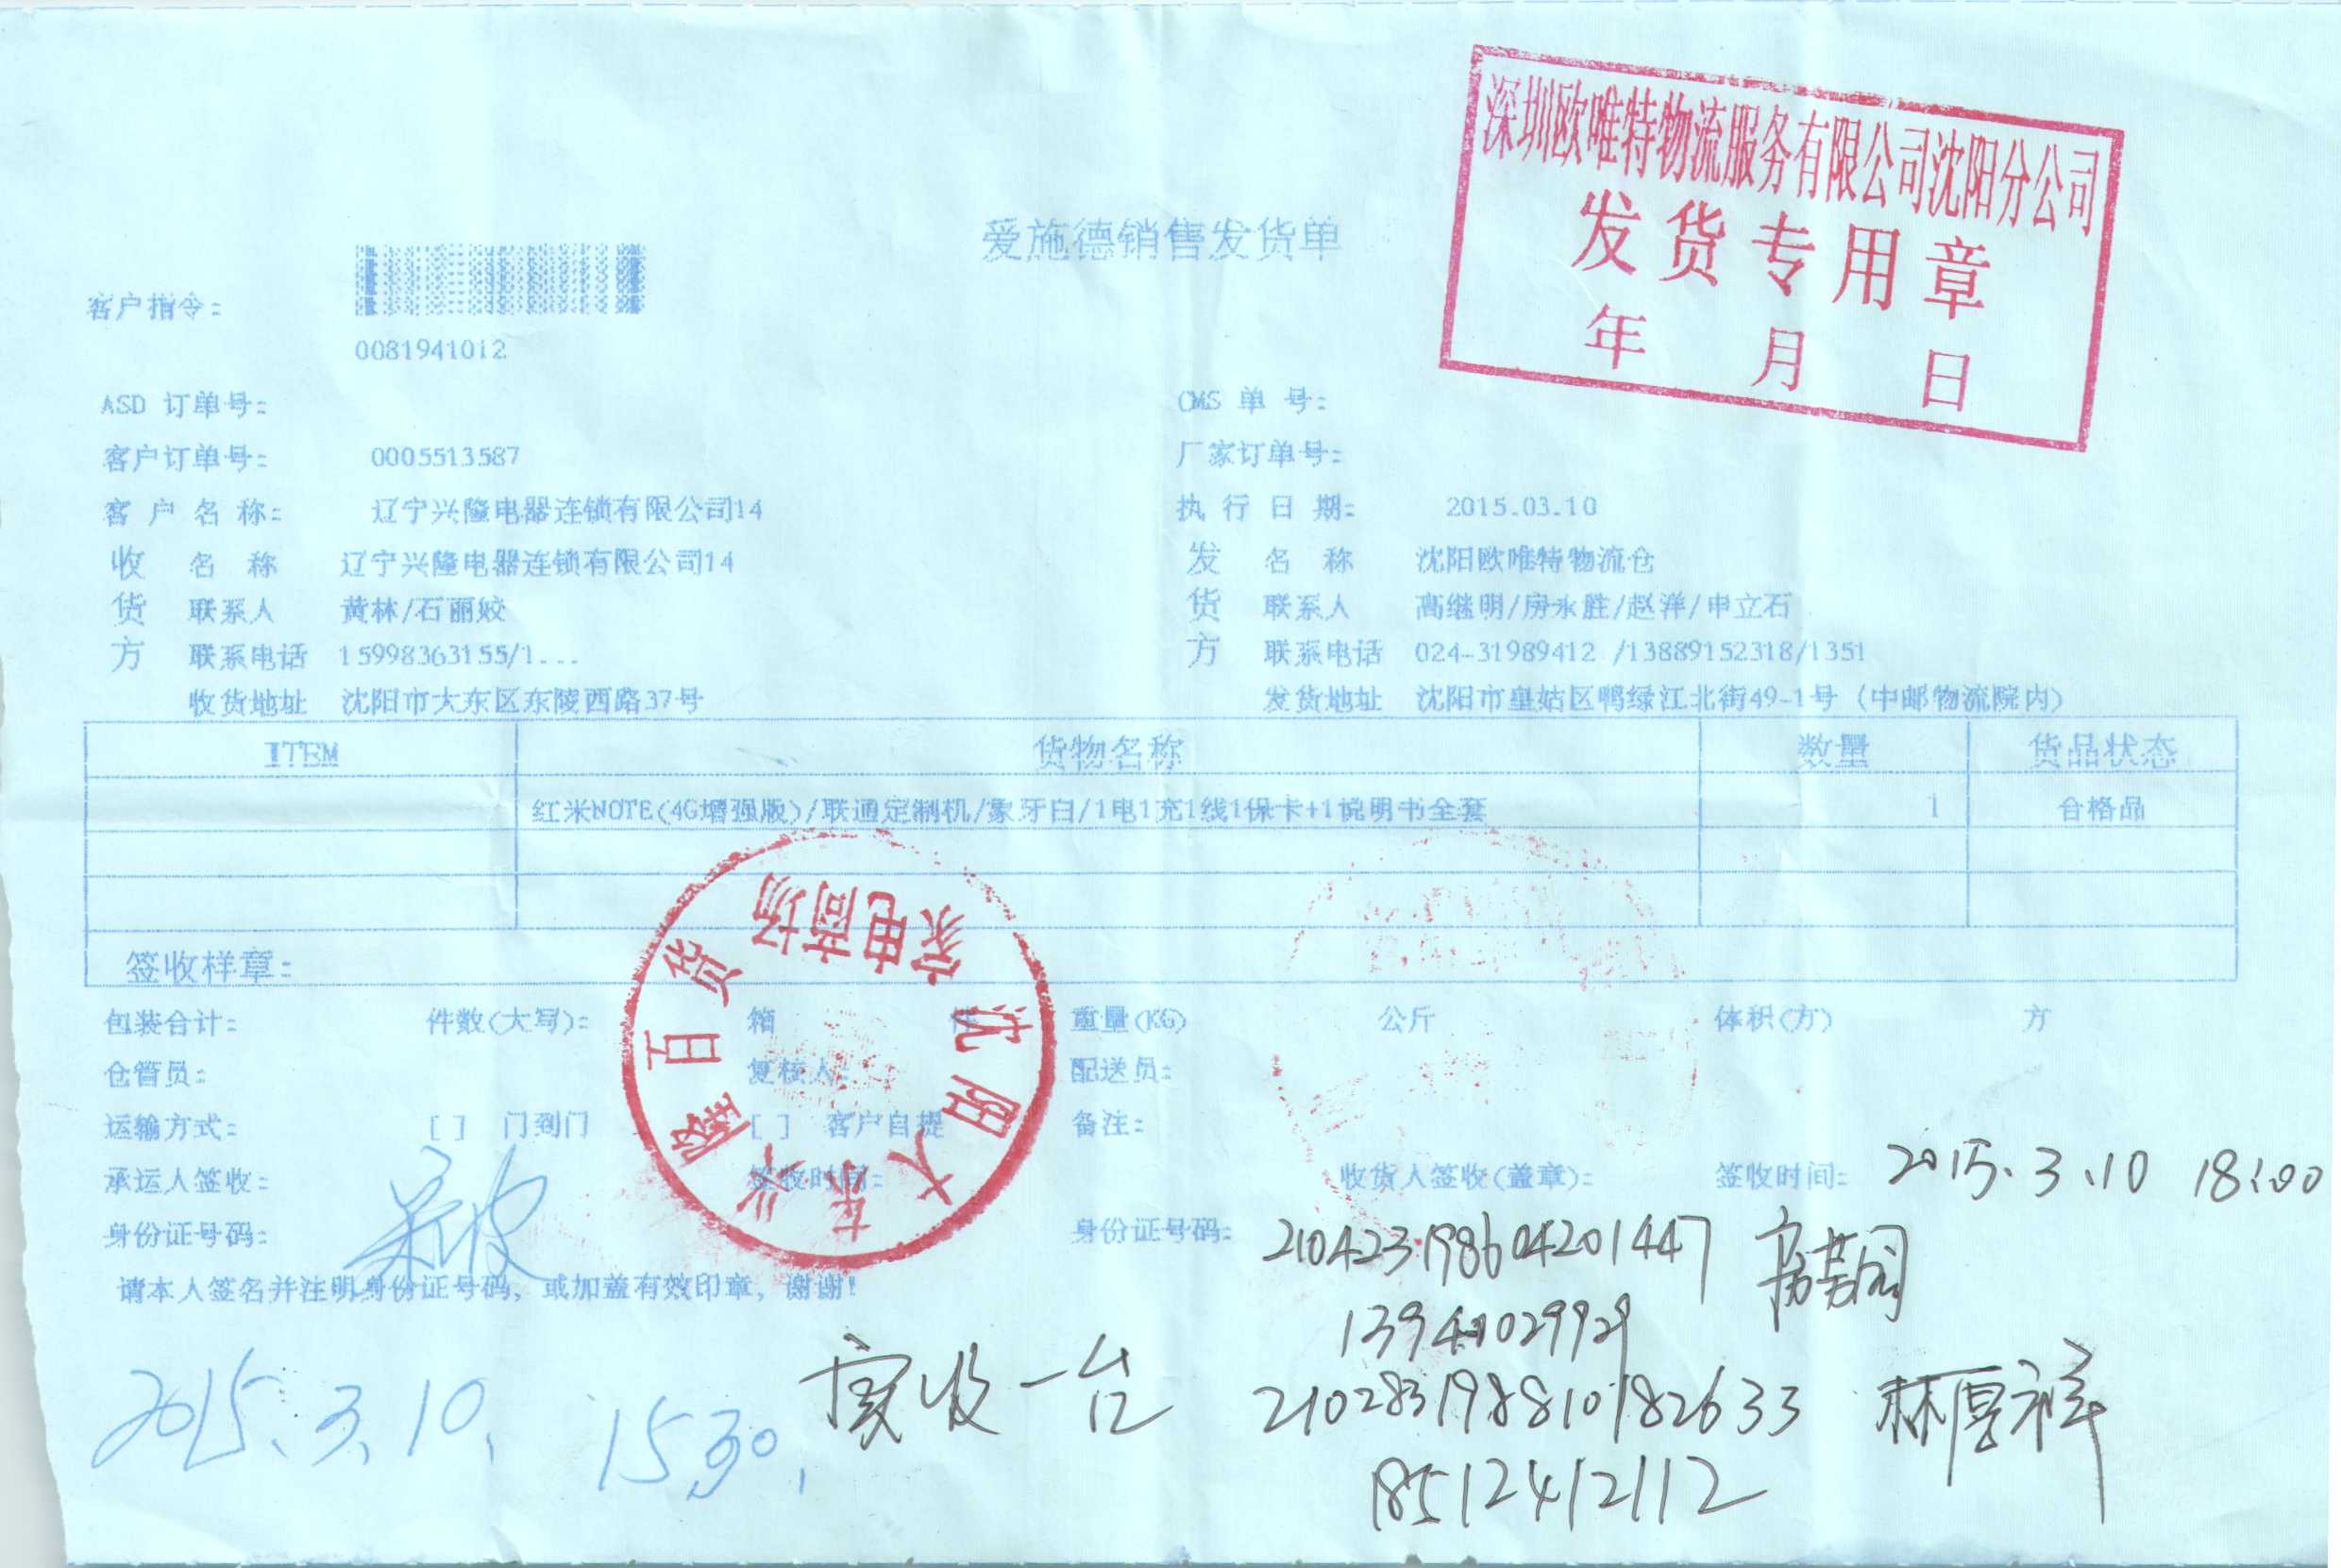 深圳欧唯特物流服务有限公司沈阳分公司
发货专用章
年 月 日
爱施德销售发货单
客户指令:
0081941012
ASD 订单号: OMS 单 号:
客户订单号: 0005513587 厂家订单号:
客 户 名 称: 辽宁兴隆电器连锁有限公司14 执 行 日 期: 2015.03.10
收 名 称 辽宁兴隆电器连锁有限公司14 发 名 称 沈阳欧唯特物流仓
货 联系人 黄林/石丽姣 货 联系人 高继明/房永胜/赵洋/申立石
方 联系电话 15998363155/1... 方 联系电话 024-31989412 /13889152318/1351
收货地址 沈阳市大东区东陵西路37号 发货地址 沈阳市皇姑区鸭绿江北街49-1号 (中邮物流院内)
ITEM 货物名称 数量 货品状态
红米NOTE(4G增强版)/联通定制机/象牙白/1电1充1线1保卡+1说明书全套 1 合格品
签收样章:
沈阳大东兴隆百货
家电商场
包装合计: 件数(大写): 箱 件 重量(KG) 公斤 体积(方) 方
仓管员: 复核人: 配送员:
运输方式: [ ] 门到门 [ ] 客户自提 备注:
承运人签收: 签收时间: 收货人签收(盖章): 签收时间: 2015.3.10 18:00
身份证号码: 身份证号码: 210423198604201447
请本人签名并注明身份证号码, 或加盖有效印章, 谢谢!
实收一台 210283198810182633 林厚祥
2015.3.10. 15:30.
18512412112